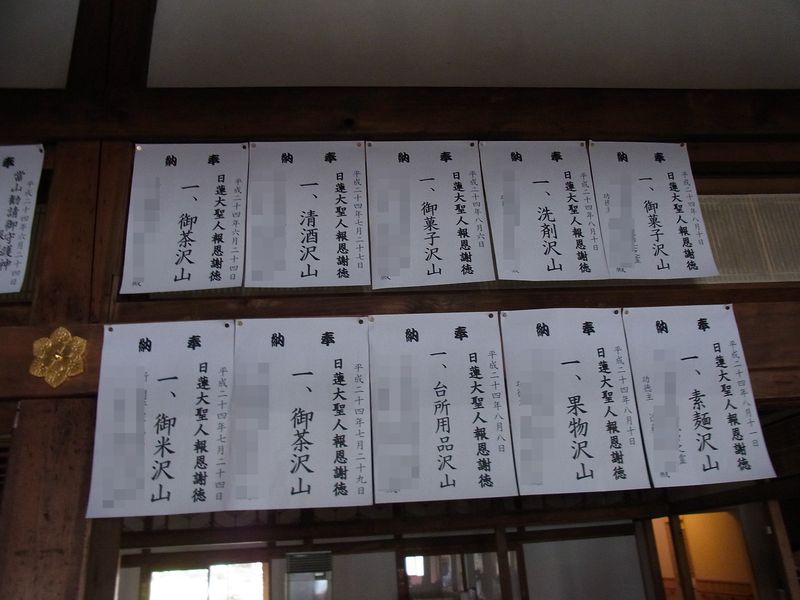 奉納
平成二十四年八月十日
日蓮大聖人報恩謝徳
一、御菓子沢山
功徳主
殿
奉納
平成二十四年八月十日
日蓮大聖人報恩謝徳
一、洗剤沢山
功
殿
奉納
平成二十四年八月六日
日蓮大聖人報恩謝徳
一、御菓子沢山
奉納
平成二十四年七月二十七日
日蓮大聖人報恩謝徳
一、清酒沢山
殿
奉納
平成二十四年六月二十四日
日蓮大聖人報恩謝徳
一、御茶沢山
殿
奉
平成二十四年六月二十四
當山勧請御守護神
奉納
平成二十四年八月十一日
日蓮大聖人報恩謝徳
一、素麺沢山
功徳主
殿
奉納
平成二十四年八月十日
日蓮大聖人報恩謝徳
一、果物沢山
功
殿
奉納
平成二十四年八月八日
日蓮大聖人報恩謝徳
一、台所用品沢山
奉納
平成二十四年七月二十九日
日蓮大聖人報恩謝徳
一、御茶沢山
奉納
平成二十四年七月二十四日
日蓮大聖人報恩謝徳
一、御米沢山